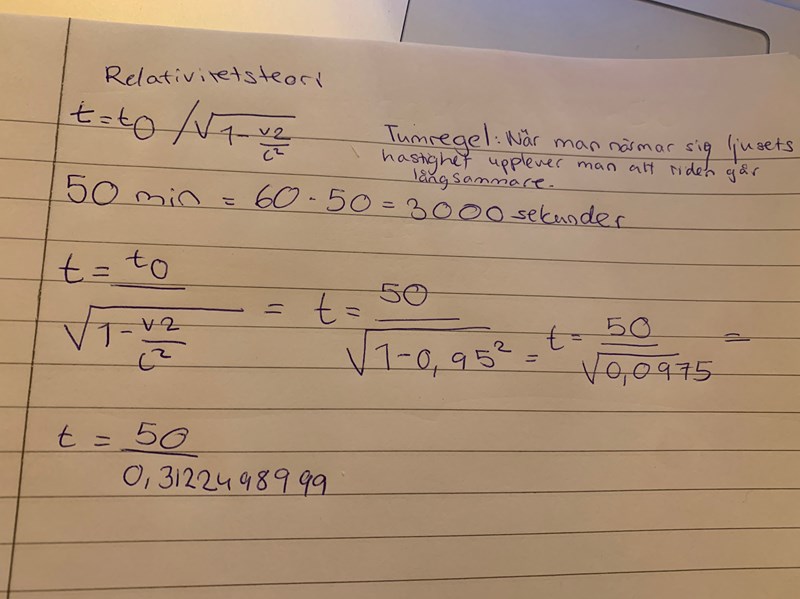 Relativitetsteori
t = t0 / √1 - v2/c²
Tumregel: När man närmar sig ljusets
hastighet upplever man att tiden går
långsammare.
50 min = 60 · 50 = 3000 sekunder
t = t0 / √1 - v2/c² = t = 50 / √1 - 0,95² = t = 50 / √0,0975 =
t = 50 / 0,3122498999